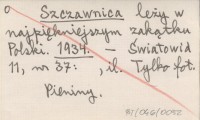 o
Szczawnica leży w
najpiękniejszym zakątku
Polski. 1934. – Światowid
11, nr 37: , il. Tylko fot.
Pieniny.